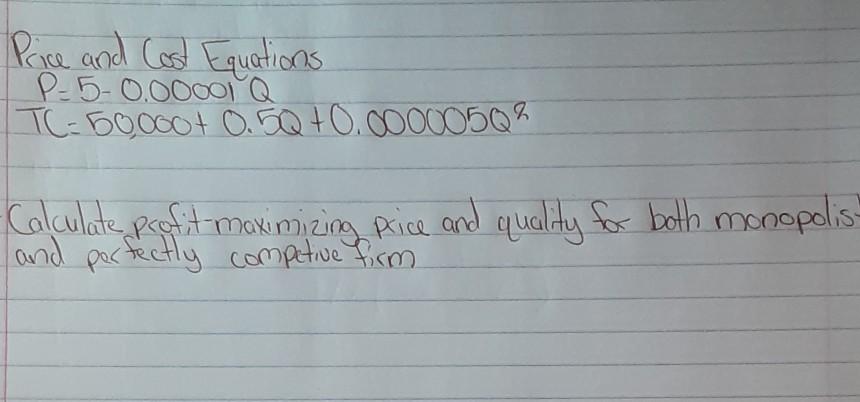 Price and Cost Equations
P=5-0.00001Q
TC=50,000+ 0.5Q+0.000005Q²
Calculate profit-maximizing price and quality for both monopolis
and perfectly compctive firm